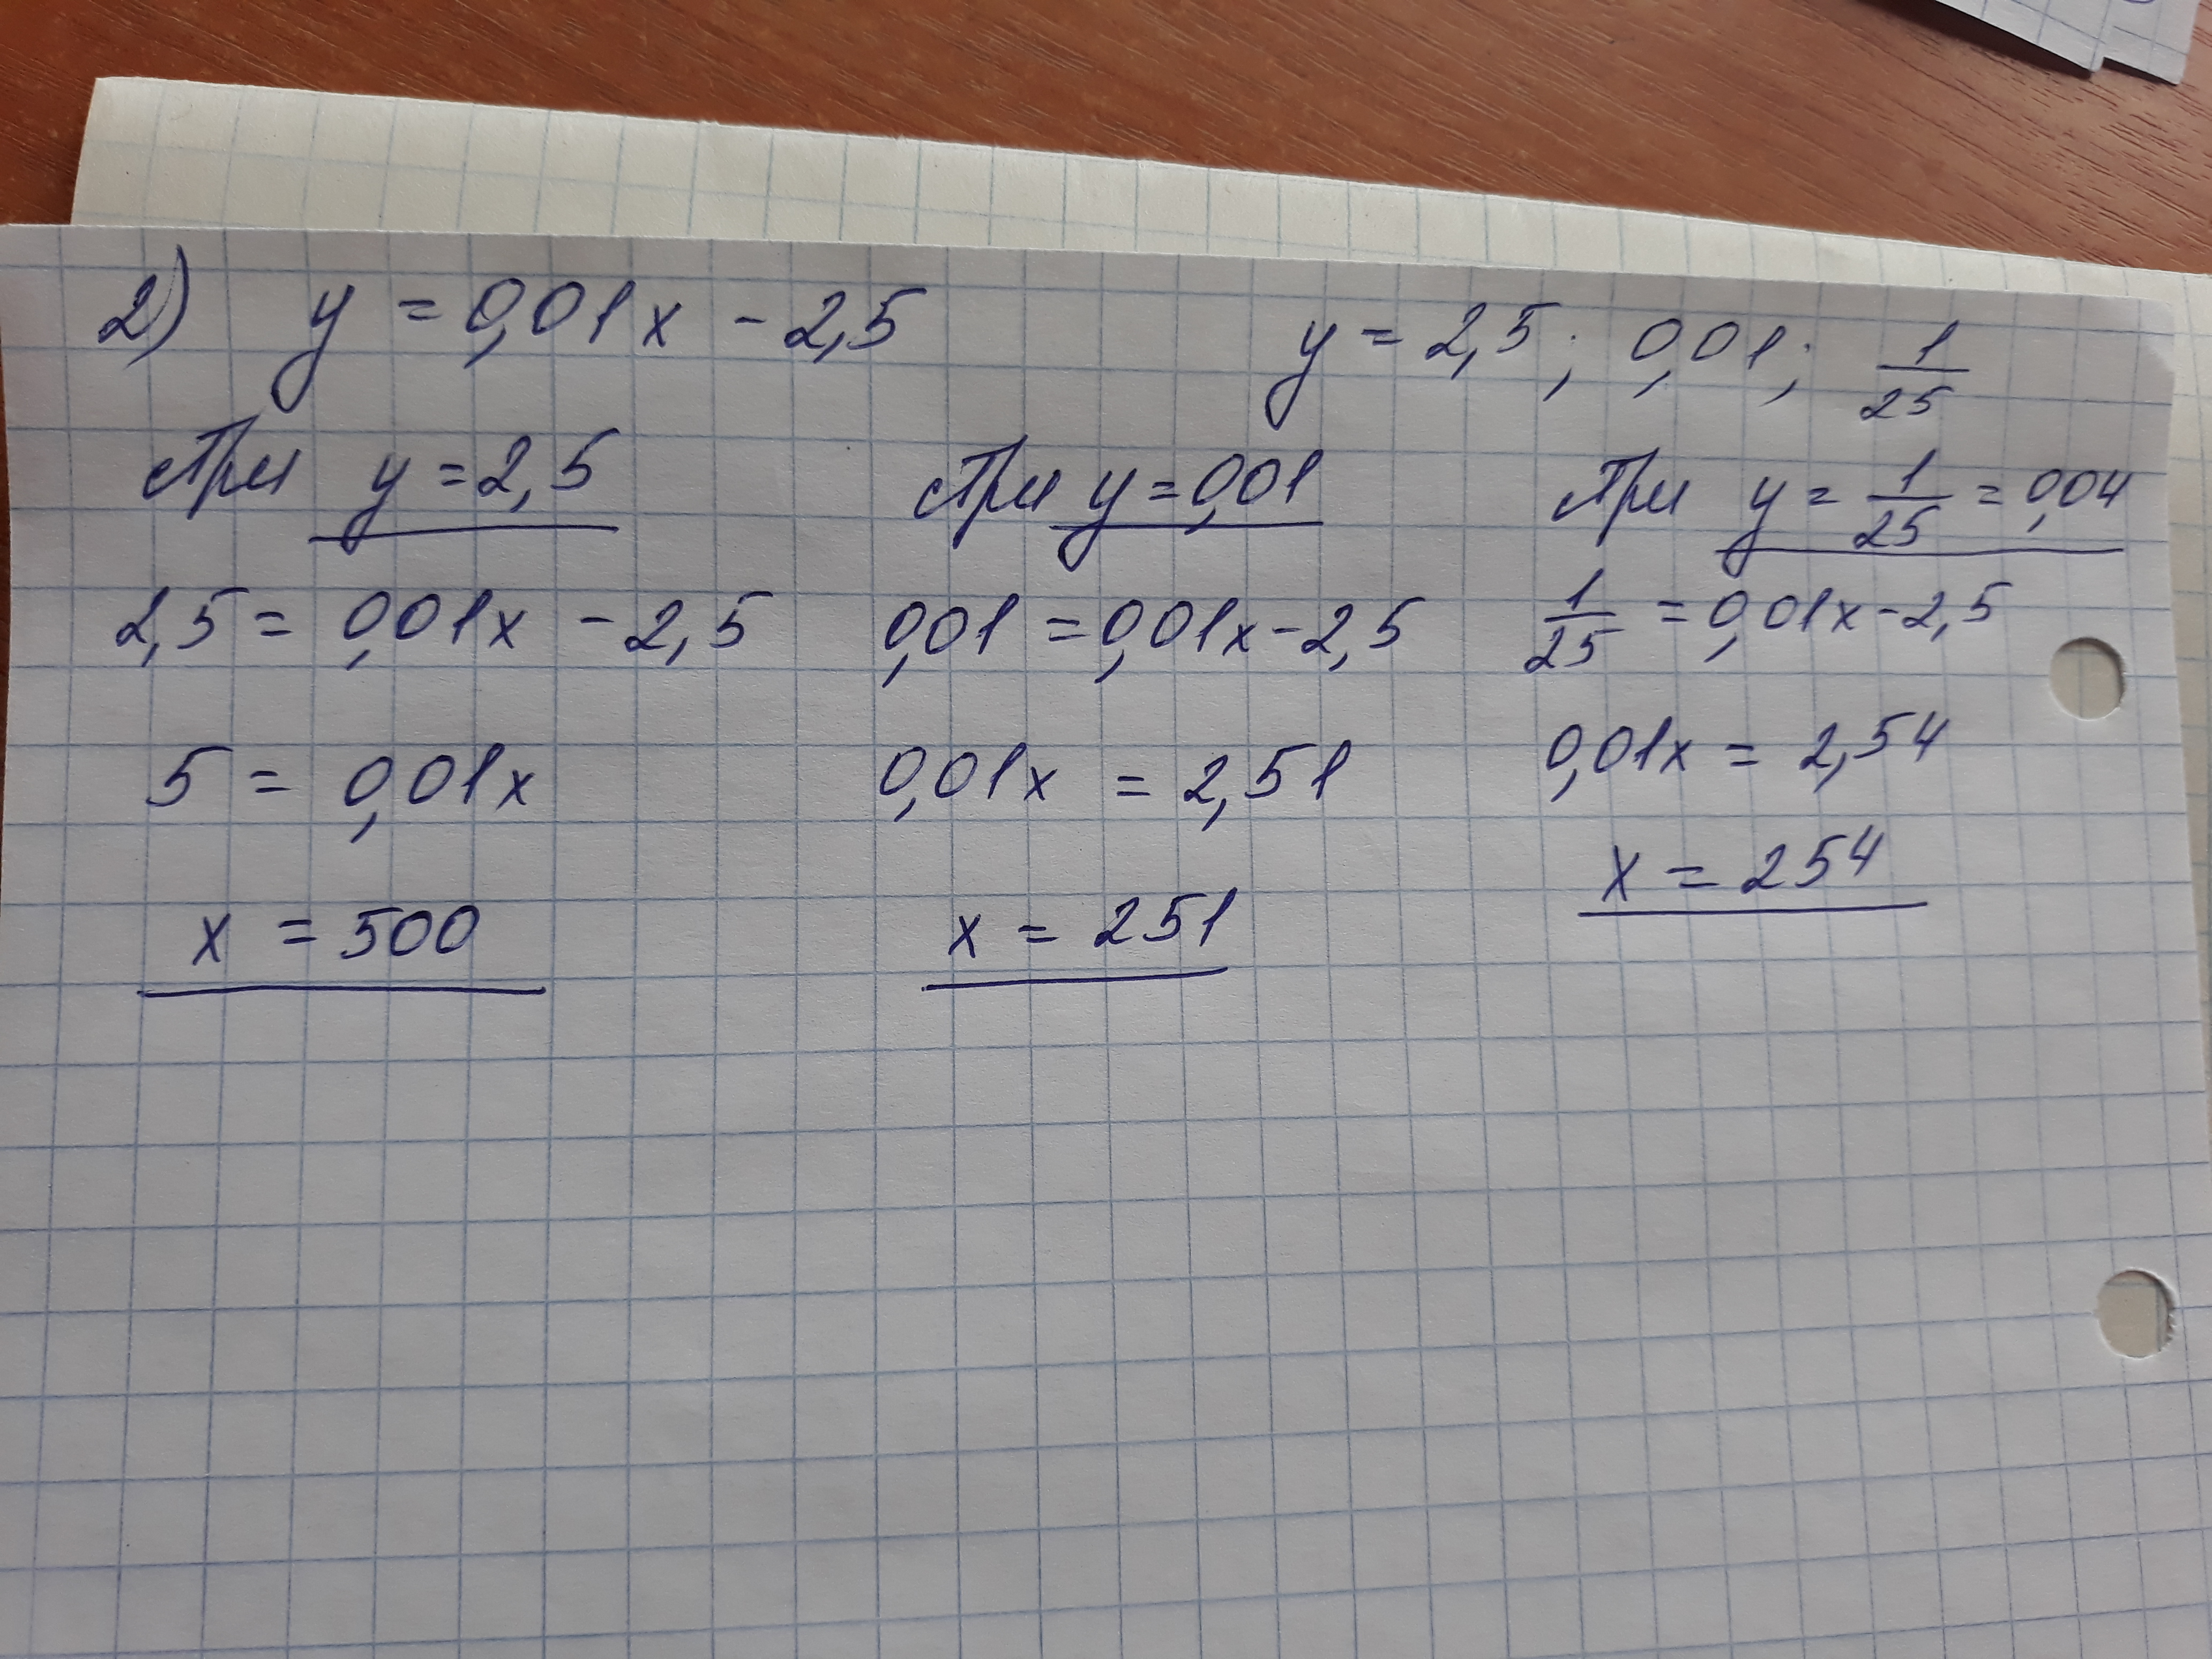 2) y = 0,01x - 2,5 y = 2,5; 0,01; 1/25
При y = 2,5
2,5 = 0,01x - 2,5
5 = 0,01x
x = 500
При y = 0,01
0,01 = 0,01x - 2,5
0,01x = 2,51
x = 251
При y = 1/25 = 0,04
1/25 = 0,01x - 2,5
0,01x = 2,54
x = 254